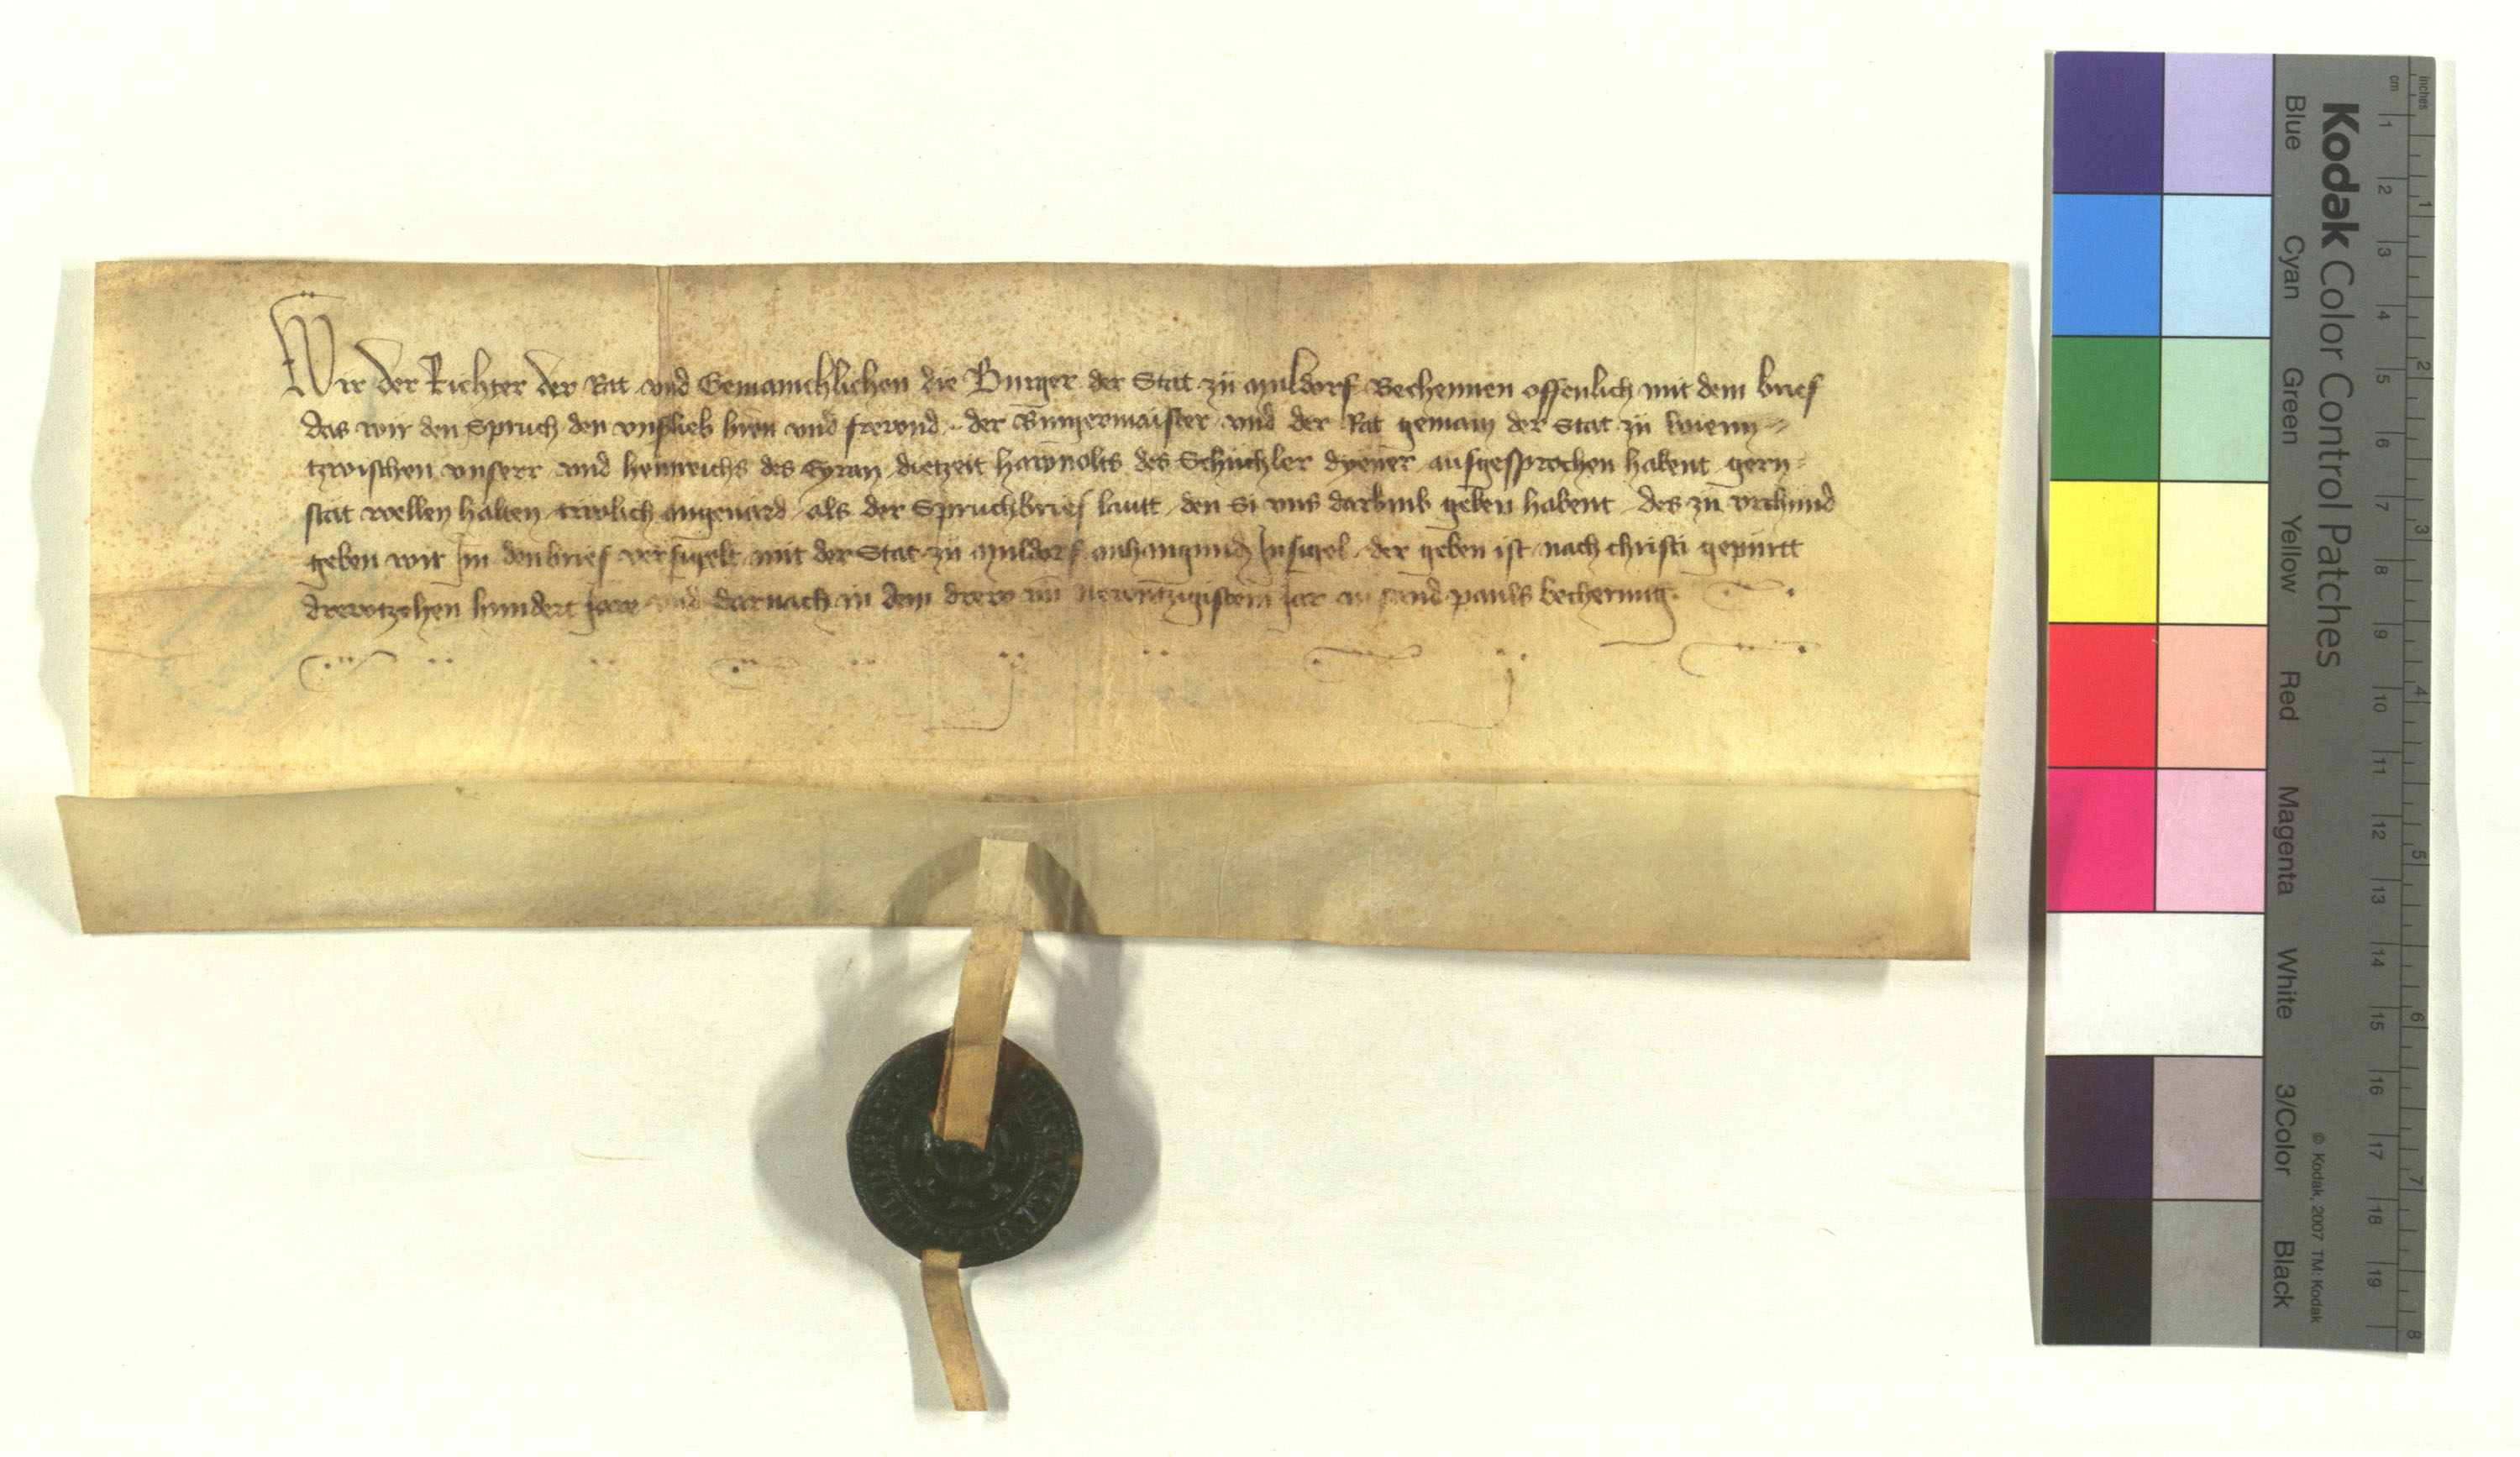 Wir der Richter der Rat und Gemainchlichen die Burger der Stat zu Muldorf Bechennen offenlich mit dem brief
das wir den Spruch den unslieb hrēn und frewnd der Burgermaister und der Rat gemain der Stat zu wienn
tzwischen unserr und heinreichs des dietzeit des Schuchler dyener ausgesprochen habent gern
stat wellen halten trewlich angeuard als der Spruchbrief lautt den Si uns darumb geben habent des zu urchund
geben wir Im den brief versigelt mit der Stat zu Muldorf anhangund Insigel der geben ist nach christi gepurtt
drewtzehen hundert Jare und darnach in dem drew uñ Newntzigistem Jar an sand pauls becherung
Kodak Color Control Patches
Blue Cyan Green Yellow Red Magenta White 3/Color Black
© Kodak, 2007 TM: Kodak
cm 1 2 3 4 5 6 7 8 9 10 11 12 13 14 15 16 17 18 19
inches 1 2 3 4 5 6 7 8